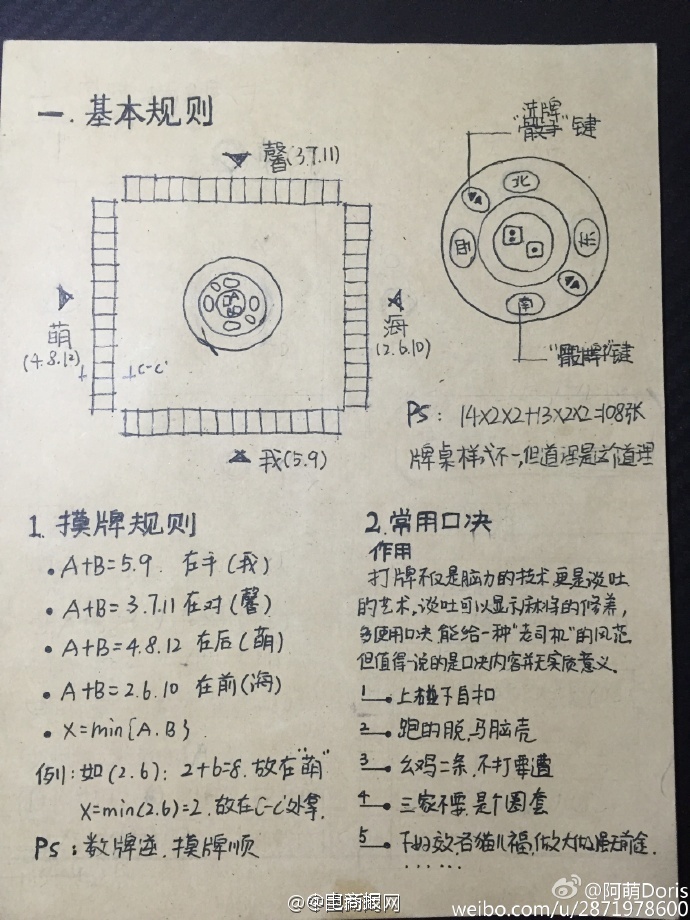 一. 基本规则
馨(3.7.11)
萌
(4.8.12)
C-C'
海
(2.6.10)
我(5.9)
洗牌
"骰子"键
北
西
东
南
PS: 14×2×2+13×2×2=108张
牌桌样式不一,但道理是这个道理
1. 摸牌规则
• A+B=5.9. 在手(我)
• A+B=3.7.11 在对(馨)
• A+B=4.8.12 在后(萌)
• A+B=2.6.10 在前(海)
• X=min{A.B}
例1:如(2.6): 2+6=8. 放在"萌"
X=min(2.6)=2. 放在C-C'处拿.
PS:数牌逆.摸牌顺
2. 常用口决
作用
打牌不仅是脑力的技术更是谈吐
的艺术,谈吐可以显示麻将的修养,
多使用口决 能给一种"老司机"的风范
但值得一说的是口决内容并无实质意义.
1 上碰下自扣
2 跑的脱,马脑壳
3 幺鸡二条,不打要遭
4 三家不要,是个圈套
5
......
@电商报网
@阿萌Doris
weibo.com/u/2871978600